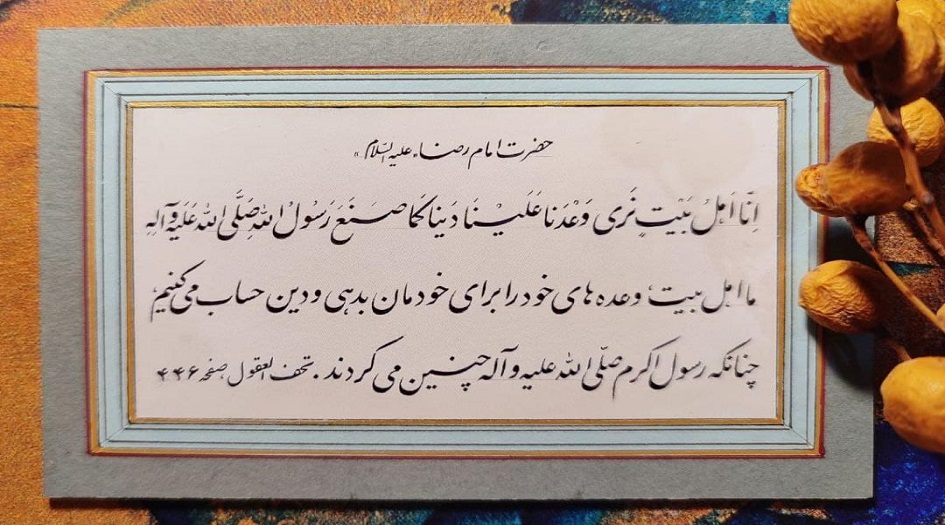 حضرت امام رضا «علیه السّلام»
اِنّا اَهلُ بَیْتٍ نَری وَعْدَنا عَلَیْنا دَیناً کَما صَنَعَ رَسُولُ اللهِ صَلَّی اللهُ عَلَیْهِ وَآلِهِ
ما اهل بیت، وعده های خود را برای خودمان بدهی و دین حساب می کنیم،
چنانکه رسول اکرم صلّی الله علیه و آله چنین می کردند. تحف العقول صفحه ۴۴۶